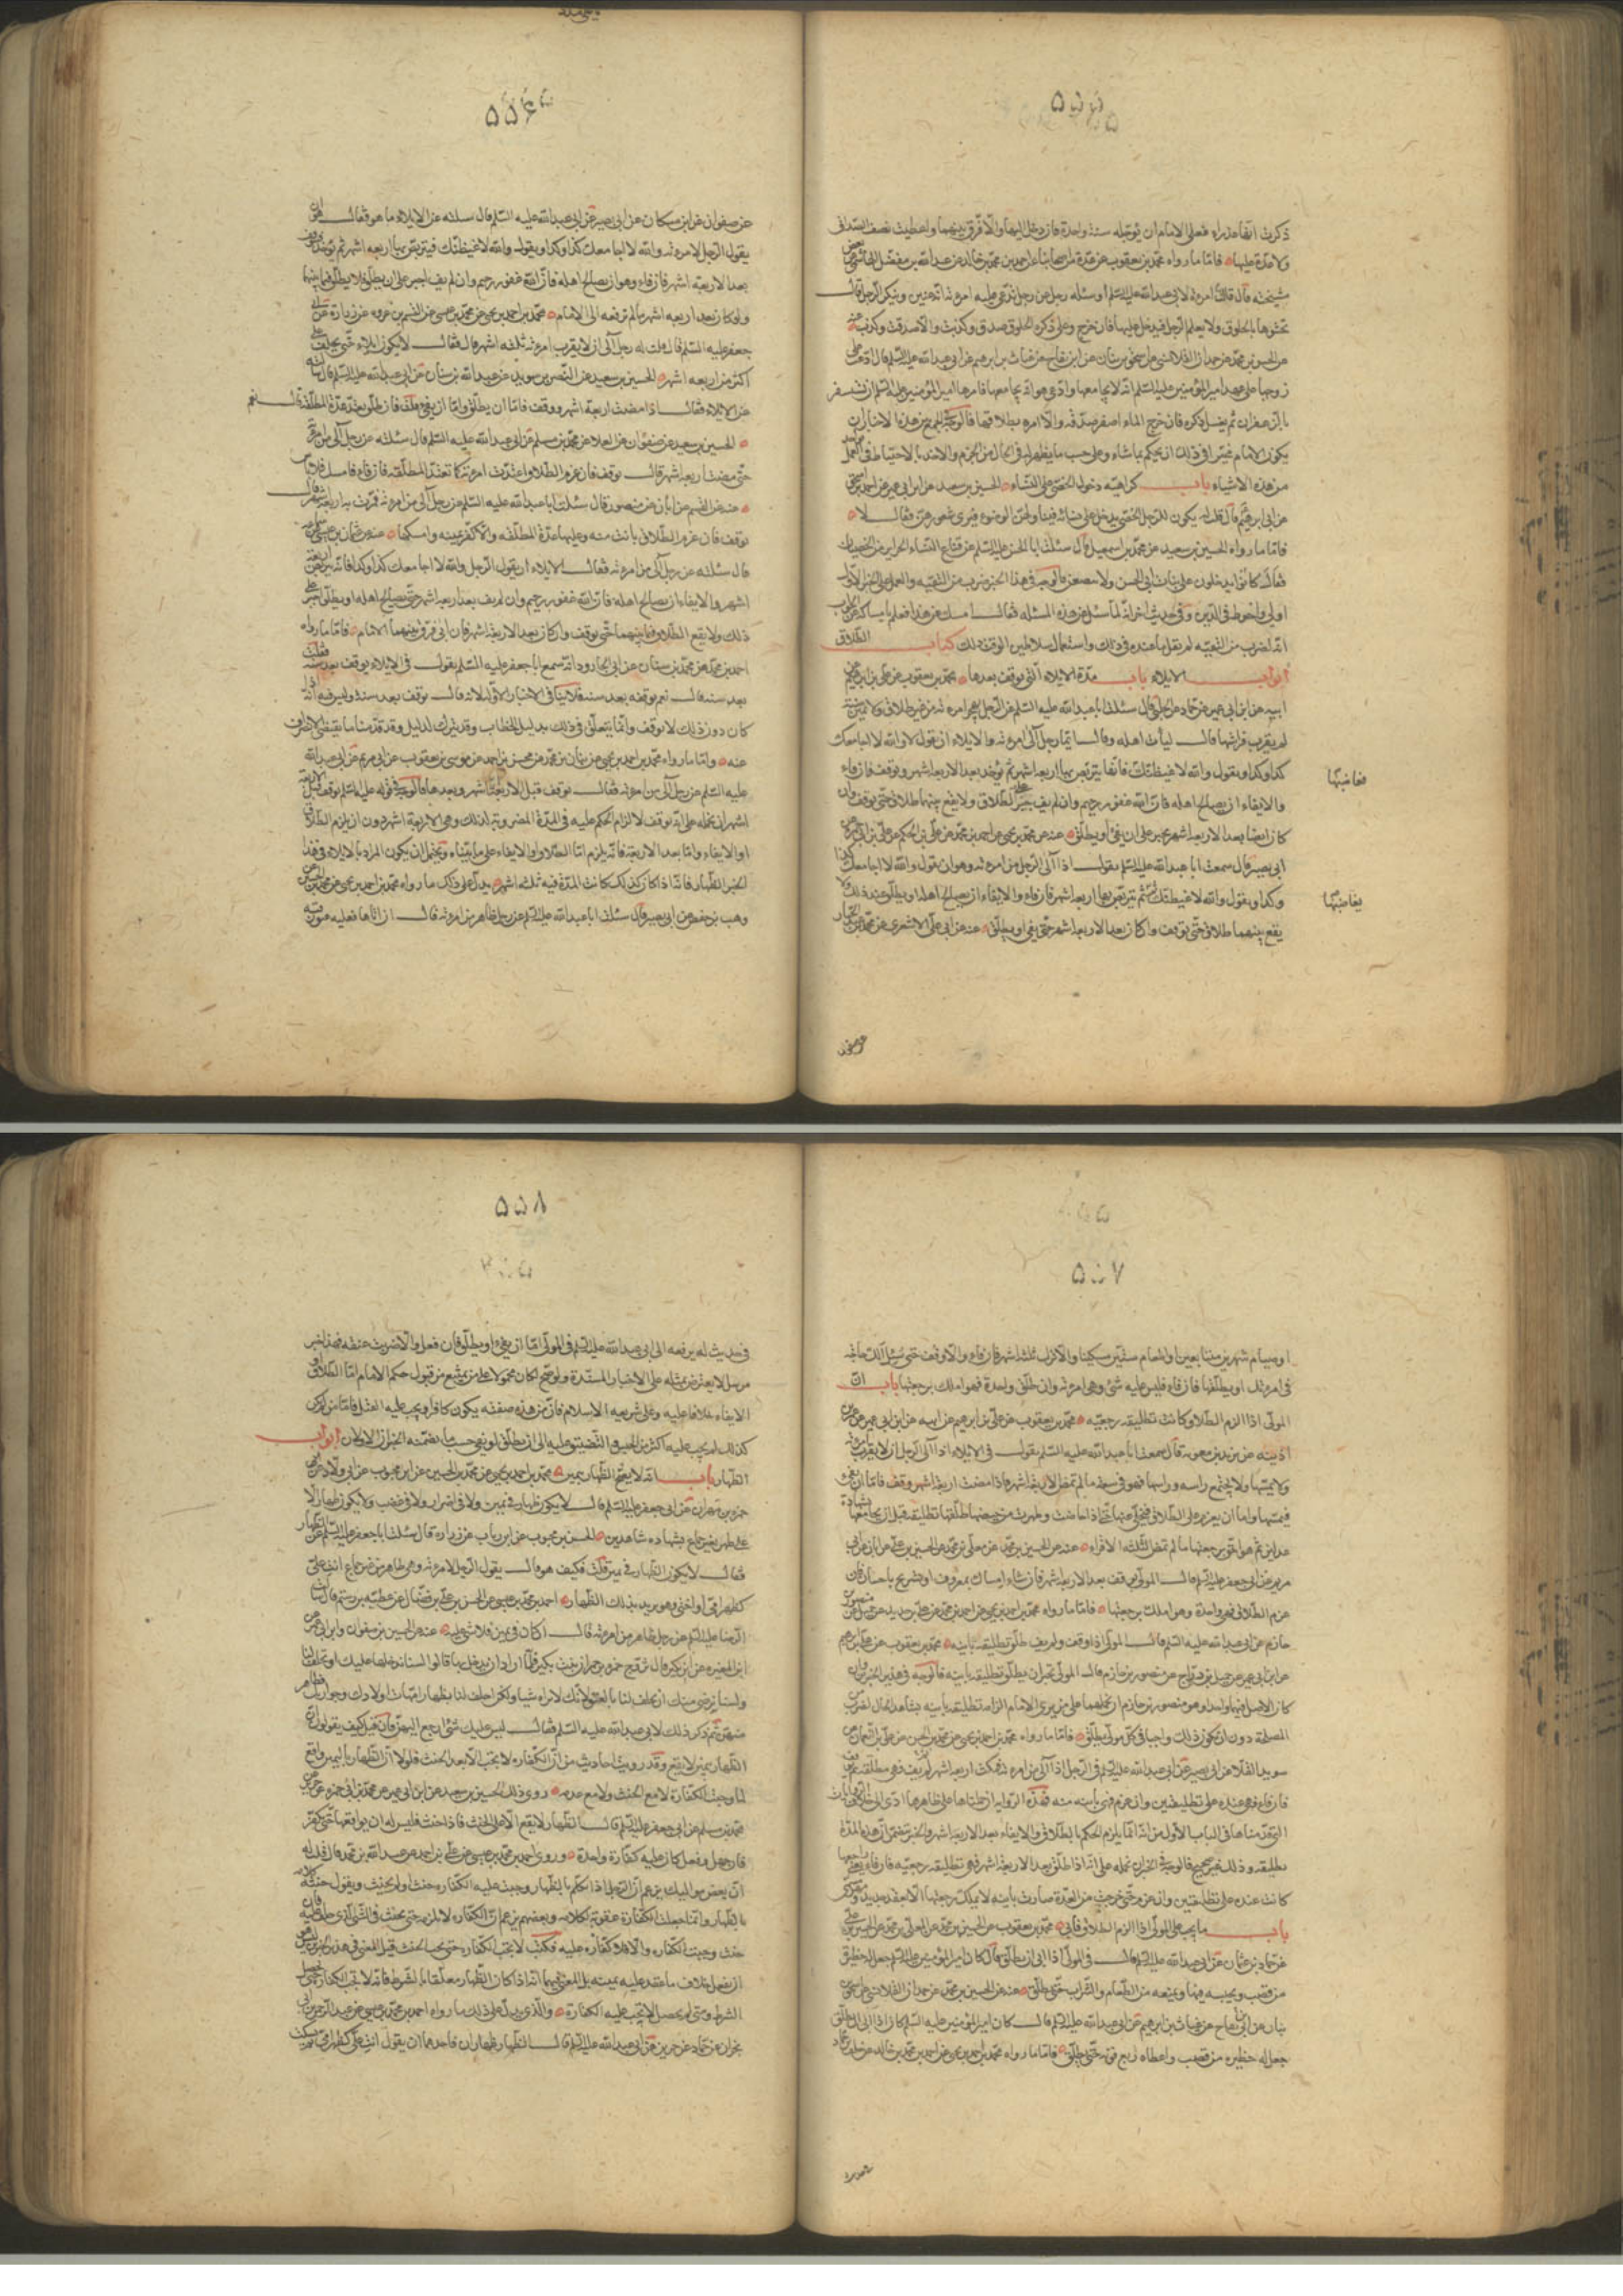 ۵۵۵
ذكرت انها عذراء فعلى الامام ان يؤجله سنة واحدة فان دخل اليها والا فرق بينهما واعطيت نصف الصداق
ولا عدة عليها فاما ما رواه محمد بن يعقوب عن عدة من اصحابنا عن احمد بن محمد بن خالد عن عبد الله بن مفضل الهاشمي عن بعض
مشيخته قال قالت امرأة لابي عبد الله عليه السلم او سئله رجل عن رجل تدعى عليه امرءته انه عنين وينكر الرجل قال
تحشوها بالخلوق ولا يعلم الرجل فيدخل عليها فان خرج وعلى ذكره الخلوق صدق وكذبت والا صدقت وكذب
عن الحسين بن محمد عن حمدان القلانسي عن اسحق بن بنان عن ابن بقاح عن غياث بن ابرهيم عن ابي عبد الله عليه السلم قال ادعت على
زوجها على عهد امير المؤمنين عليه السلم انه لا يجامعها وادعى هو انه يجامعها فامرها امير المؤمنين عليه السلم ان تستثفر
بالزعفران ثم يغسل ذكره فان خرج الماء اصفر صدقه والا امره بطلاقها فالوجه في الجمع بين هذه الاخبار ان
يكون الامام مخيرا في ذلك ان يحكم بما شاء وعلى حسب ما يظهر له في الحال من الحزم والاخذ بالاحتياط في العمل
من هذه الاشياء باب كراهية دخول الخصي على النساء الحسين بن سعيد عن ابن ابي عمير عن احمد بن اسحق
عن ابي ابرهيم قال قلت له يكون للرجل الخصي يدخل على نسائه فيناولهن الوضوء فيرى شعورهن فقال لا
فاما ما رواه الحسين بن سعيد عن محمد بن اسمعيل قال سئلت ابا الحسن عليه السلم عن قناع النساء الحراير من الخصيان
فقال كانوا يدخلون على بنات ابي الحسن ولا يتقنعن فالوجه في هذا الخبر ضرب من التقيه والعمل على الخبر الاول
اولى واحوط في الدين وفي حديث اخر انه لما سئل عن هذه المسئله فقال امسك عن هذا فعلم بامساكه عن الجواب
انه لضرب من التقيه لم يقل ما عنده في ذلك واستعمال سلاطين الوقت ذلك كتاب الطلاق
ابواب الايلاء باب مدة الايلاء التي يوقف بعدها محمد بن يعقوب عن علي بن ابرهيم عن
ابيه عن ابن ابي عمير عن حماد عن الحلبي قال سئلت ابا عبد الله عليه السلم عن الرجل يهجر امرءته من غير طلاق ولا يمين سنة
لم يقرب فراشها قال ليأت اهله وقال ايما رجل آلى امرءته والايلاء ان يقول لا والله لا اجامعك
كذا وكذا ويقول والله لاغيظنك فانها يتربص بها اربعة اشهر ثم يؤخذ بعد الاربعة اشهر ويوقف فان فاء
والايفاء ان يصالح اهله فان الله غفور رحيم وان لم يف جبر على الطلاق ولا يقع بينهما طلاق حتى يوقف وان
كان ايضا بعد الاربعة اشهر يجبر على ان يفئ او يطلق عنه عن محمد بن يحيى عن احمد بن محمد عن علي بن الحكم عن علي بن ابي حمزة عن
ابي بصير قال سمعت ابا عبد الله عليه السلم يقول اذا آلى الرجل من امرءته وهو ان يقول والله لا اجامعك كذا
وكذا ويقول والله لاغيظنك ثم يتربص بها اربعة اشهر فان فاء والايفاء ان يصالح اهله او يطلق عند ذلك ولا
يقع بينهما طلاق حتى يوقف وان كان بعد الاربعة اشهر حتى يفئ او يطلق عنه عن ابي علي الاشعري عن محمد بن عبد الجبار
مغاضبها
يغاضبها
عن صفوان
۵۵۶
عن صفوان عن ابن مسكان عن ابي بصير عن ابي عبد الله عليه السلم قال سئلته عن الايلاء ما هو فقال هو ان
يقول الرجل لامرءته والله لا اجامعك كذا وكذا ويقول والله لاغيظنك فيتربص بها اربعة اشهر ثم يؤخذ فيوقف
بعد الاربعة اشهر فان فاء وهو ان يصالح اهله فان الله غفور رحيم وان لم يف اجبر على ان يطلق ولا يقع طلاق فيما بينهما
ولو كان بعد اربعة اشهر ما لم ترفعه الى الامام محمد بن احمد بن يحيى عن محمد بن عيسى عن القسم بن عروه عن زرارة عن ابي
جعفر عليه السلم قال قلت له رجل آلى ان لا يقرب امرءته ثلثة اشهر قال فقال لا يكون ايلاء حتى يحلف على
اكثر من اربعة اشهر الحسين بن سعيد عن النضر بن سويد عن عبد الله بن سنان عن ابي عبد الله عليه السلم قال سئلته
عن الايلاء فقال اذا مضت اربعة اشهر ووقف فاما ان يطلق واما ان يفئ قلت فان طلق تعتد عدة المطلقة قال نعم
الحسين بن سعيد عن صفوان عن العلاء عن محمد بن مسلم عن ابي عبد الله عليه السلم قال سئلته عن رجل آلى من امرءته
حتى مضت اربعة اشهر قال يوقف فان عزم الطلاق اعتدت امرءته كما تعتد المطلقة فان فاء فامسك فلا باس
عنه عن القسم عن ابان عن منصور قال سئلت ابا عبد الله عليه السلم عن رجل آلى من امرءته فمرت به اربعة اشهر قال
يوقف فان عزم الطلاق بانت منه وعليها عدة المطلقة والا كفر يمينه وامسكها عنه عن عثمان بن عيسى عن سماعة
قال سئلته عن رجل آلى من امرءته فقال الايلاء ان يقول الرجل والله لا اجامعك كذا وكذا فانه يتربص اربعة
اشهر والايفاء ان يصالح اهله فان الله غفور رحيم وان لم يف بعد اربعة اشهر حتى يصالح اهله او يطلق جبر على
ذلك ولا يقع الطلاق فيما بينهما حتى يوقف وان كان بعد الاربعة اشهر فان ابى فرق بينهما الامام فاما ما رواه
احمد بن محمد عن محمد بن سنان عن ابي الجارود انه سمع ابا جعفر عليه السلم يقول في الايلاء يوقف بعد سنة فقلت
بعد سنة قال نعم يوقف بعد سنة فلا ينافي الاخبار الاوله لانه قال يوقف بعد سنة وليس فيه انه اذا
كان دون ذلك لا يوقف وانما يتعلق في ذلك بدليل الخطاب وقد يترك لدليل وقد قدمنا ما يقتضي الانصراف
عنه واما ما رواه محمد بن احمد بن يحيى عن بنان بن محمد عن محسن بن احمد عن يونس بن يعقوب عن ابي مريم عن ابي عبد الله
عليه السلم عن رجل آلى من امرءته فقال يوقف قبل الاربعة اشهر وبعدها فالوجه في قوله عليه السلم يوقف قبل الاربعة
اشهر ان نحمله على انه يوقف لالزام الحكم عليه في المدة المضروبة لذلك وهي الاربعة اشهر دون ان يلزم الطلاق
او الايفاء واما بعد الاربعة فانه يلزم اما الطلاق او الايفاء على ما بيناه ويحتمل ان يكون المراد بالايلاء في هذا
الخبر الظهار فانه اذا كان كذلك كانت المدة فيه ثلثة اشهر يدل على ذلك ما رواه محمد بن احمد بن يحيى عن محمد بن الحسين عن
وهب بن حفص عن ابي بصير قال سئلت ابا عبد الله عليه السلم عن رجل ظاهر من امرءته قال ان اتاها فعليه عتق رقبة
۵۵۷
او صيام شهرين متتابعين او اطعام ستين مسكينا والا ترك ثلثة اشهر فان فاء والا وقف حتى يسئل ألك حاجة
في امرءتك او يطلقها فان فاء فليس عليه شئ وهي امرءته وان طلق واحدة فهو املك برجعتها باب ان
المولى اذا الزم الطلاق كانت تطليقة رجعيه محمد بن يعقوب عن علي بن ابرهيم عن ابيه عن ابن ابي عمير عن عمر بن
اذينه عن بريد بن معوية قال سمعت ابا عبد الله عليه السلم يقول في الايلاء اذا آلى الرجل ان لا يقرب امرءته
ولا يمسها ولا يجتمع راسه وراسها فهو في سعة ما لم تمض الاربعة اشهر فاذا مضت اربعة اشهر وقف فاما ان يفئ
فيمسها واما ان يعزم على الطلاق فيخلى عنها حتى اذا حاضت وطهرت من حيضها طلقها تطليقة قبل ان يجامعها بشهادة
عدلين ثم هو احق برجعتها ما لم تمض الثلثة الاقراء عنه عن الحسين بن محمد عن معلى بن محمد عن الحسن بن علي عن ابان عن ابي
مريم عن ابي جعفر عليه السلم قال المولى يوقف بعد الاربعة اشهر فان شاء امساك بمعروف او تسريح باحسان فان
عزم الطلاق فهي واحدة وهو املك برجعتها فاما ما رواه محمد بن احمد بن يحيى عن احمد بن محمد عن علي بن حديد عن جميل عن منصور بن
حازم عن ابي عبد الله عليه السلم قال المولى اذا وقف ولم يف طلق تطليقه باينه محمد بن يعقوب عن علي بن ابرهيم
عن ابن ابي عمير عن جميل بن دراج عن منصور بن حازم قال المولى يجبر ان يطلق تطليقه باينه فالوجه في هذين الخبرين وان
كان الاصل فيهما واحدا وهو منصور بن حازم ان نحملهما على من يرى الامام الزامه تطليقه باينه بشاهد الحال لضرب من
المصلحة دون ان يكون ذلك واجبا في كل مولى يطلق فاما ما رواه محمد بن احمد بن يحيى عن محمد بن الحسين عن علي بن النعمان عن
سويد القلاء عن ابي بصير عن ابي عبد الله عليه السلم في الرجل اذا آلى من امرءته فمكث اربعة اشهر لم يف فهي مطلقة ثم يوقف
فان فاء فهي عنده على تطليقتين وان عزم فهي باينه منه فهذه الروايه ان حملناها على ظاهرها ادى الى خلاف الروايات
التي قدمناها في الباب الاول من انه انما يلزم الحكم بالطلاق والايفاء بعد الاربعة اشهر والخبر يتضمن ان هذه المدة
تطليقه وذلك غير صحيح فالوجه في الخبر ان نحمله على انه اذا طلق بعد الاربعة اشهر فهي تطليقه رجعيه فان فاء يعني راجعها
كانت عنده على تطليقتين وان عزم حتى خرجت من العدة صارت باينه لا يملك رجعتها الا بعقد جديد ومهر
باب ما يجب على المولى اذا الزم الطلاق فابى محمد بن يعقوب عن الحسين بن محمد عن المعلى بن محمد عن الحسن بن علي
عن حماد بن عثمان عن ابي عبد الله عليه السلم قال في المولى اذا ابى ان يطلق قال كان امير المؤمنين عليه السلم يجعل له حظيرة
من قصب ويحبسه فيها ويمنعه من الطعام والشراب حتى يطلق عنه عن الحسين بن محمد عن حمدان القلانسي عن اسحق بن
بنان عن ابن بقاح عن غياث بن ابرهيم عن ابي عبد الله عليه السلم قال كان امير المؤمنين عليه السلم كان اذا ابى ان يطلق
جعل له حظيره من قصب واعطاه ربع قوته حتى يطلق فاما ما رواه محمد بن احمد بن يحيى عن احمد بن محمد بن خالد عن خلف بن حماد
۵۵۸
في حديث له يرفعه الى ابي عبد الله عليه السلم في المولى اما ان يفئ او يطلق فان فعل والا ضربت عنقه فهذا خبر
مرسل لا يعترض بمثله على الاخبار المسندة ولو صح لكان محمولا على من يمتنع من قبول حكم الامام اما الطلاق او
الايفاء خلافا عليه وعلى شريعة الاسلام فان من هذه صفته يكون كافرا ويجب عليه القتل فاما من لم يكن
كذلك لم يجب عليه اكثر من الحبس والتضييق عليه الى ان يطلق او يفئ حسب ما تضمنه الخبران الاولان ابواب
الظهار باب انه لا يصح الظهار بيمين محمد بن احمد بن يحيى عن محمد بن الحسين عن ابن محبوب عن ابي ولاد عن
حمزه بن حمران عن ابي جعفر عليه السلم قال لا يكون ظهار في يمين ولا في اضرار ولا في غضب ولا يكون ظهار الا
على طهر بغير جماع بشهادة شاهدين الحسن بن محبوب عن ابن رئاب عن زراره قال سئلت ابا جعفر عليه السلم عن الظهار
فقال لا يكون الظهار في يمين قلت فكيف هو قال يقول الرجل لامرءته وهي طاهر من غير جماع انت علي
كظهر امي او اختي وهو يريد بذلك الظهار احمد بن محمد بن عيسى عن الحسن بن علي بن فضال عن عطيه بن رستم قال سئلت
الرضا عليه السلم عن رجل ظاهر من امرءته قال ان كان في يمين فلا شئ عليه عنه عن الحسين عن صفوان وابن ابي عمير عن
ابن المغيره عن ابن بكير قال تزوج حمزه بن حمران بنت بكير فلما اراد ان يدخل بها قالوا لسنا ندخلها عليك او تحلف لنا
ولسنا نرضى منك ان تحلف لنا بالعتق لانك لا تراه شيئا ولكن احلف لنا بظهار امهات اولادك وجواريك فظاهر
منهن ثم ذكر ذلك لابي عبد الله عليه السلم فقال ليس عليك شئ ارجع اليهن فان قيل كيف يقولون ان
الظهار بيمين لا يقع وقد روي احاديث من ان الكفاره لا تجب الا بعد الحنث فلولا ان الظهار باليمين واقع
لما وجبت الكفارة لا مع الحنث ولا مع عدمه روى ذلك الحسين بن سعيد عن ابن ابي عمير عن محمد بن ابي حمزه عن
محمد بن مسلم عن ابي جعفر عليه السلم قال الظهار لا يقع الا على الحنث فاذا حنث فليس له ان يواقعها حتى يكفر
فان جهل وفعل كان عليه كفارة واحدة وروى احمد بن محمد بن عيسى عن علي بن احمد عن عبد الله بن محمد قال قلت له
ان بعض مواليك يزعم ان الرجل اذا تكلم بالظهار وجبت عليه الكفاره حنث او لم يحنث ويقول حنثه كلامه
بالظهار وانما جعلت الكفارة عقوبة لكلامه وبعضهم يزعم ان الكفارة لا تلزمه حتى يحنث في الشئ الذي حلف عليه فان
حنث وجبت الكفاره والا فلا كفاره عليه فكتب لا تجب الكفاره حتى يجب الحنث قيل المعنى في هذين الخبرين ليس
ان يفعل خلاف ما عقد عليه يمينه بل المعنى فيهما انه اذا كان الظهار معلقا بالشرط فانه لا تجب الكفارة حتى يحصل
الشرط ومتى لم يحصل لا تجب عليه الكفارة والذي يدل على ذلك ما رواه احمد بن محمد بن عيسى عن عبد الرحمن بن ابي
نجران عن حماد عن حريز عن ابي عبد الله عليه السلم قال الظهار ظهاران فاحدهما ان يقول انت علي كظهر امي ثم يسكت